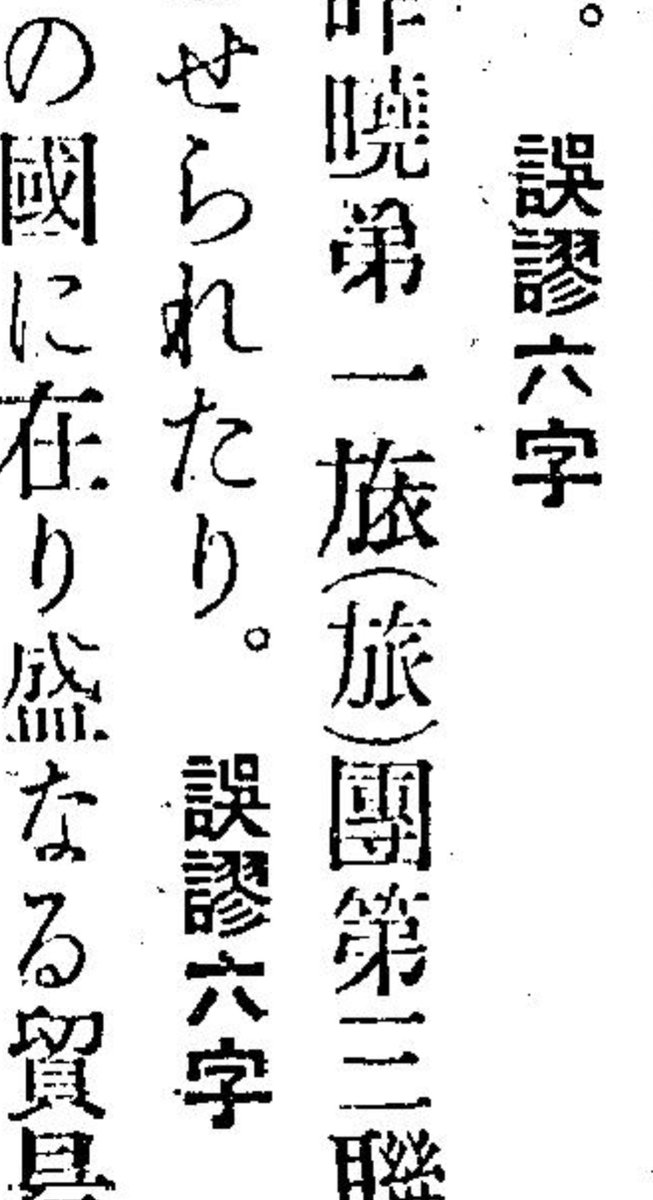 。 誤謬六字
昨曉弟一旅(旅)團第三聯
せられたり。 誤謬六字
の國に在り盛なる貿